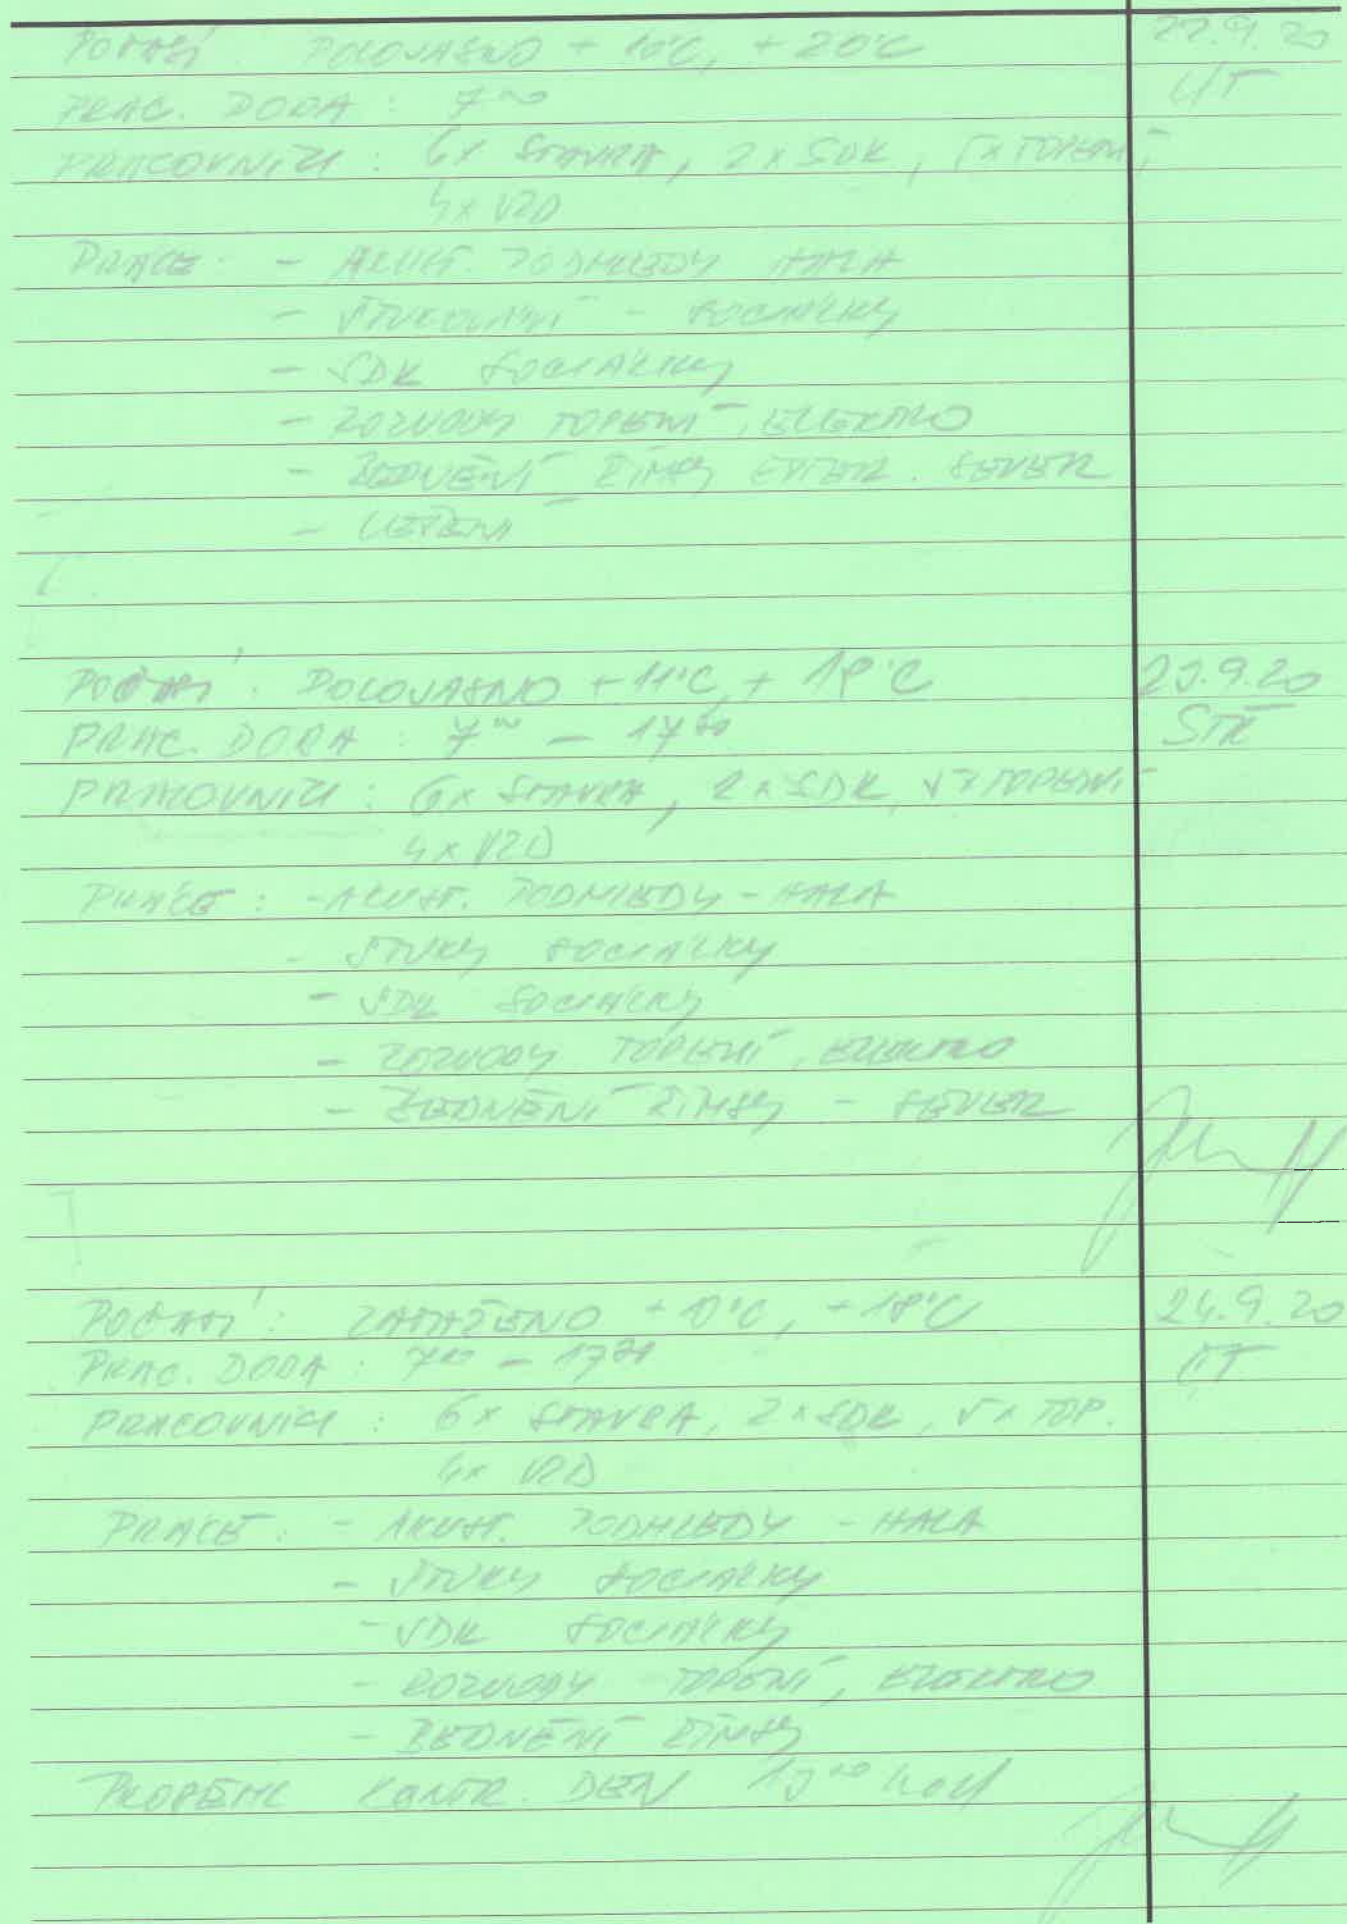 POČASÍ: POLOJASNO +10°C, +20°C 22.9.20
PRAC. DOBA: 7⁰⁰ ÚT
PRACOVNÍCI: 6x STAVBA, 2x SDK, 5x TOPENÍ
4x VZD
PRÁCE: - AKUST. PODHLEDY HALA
- ŠTUKOVÁNÍ - SOCIÁLKY
- SDK SOCIÁLKY
- ROZVODY TOPENÍ, ELEKTRO
- BEDNĚNÍ ŘÍMSY SEVER
POČASÍ: POLOJASNO +11°C, +18°C 23.9.20
PRAC. DOBA: 7⁰⁰ - 17⁰⁰ STŘ
PRACOVNÍCI: 6x STAVBA, 2x SDK, 5x TOPENÍ
4x VZD
PRÁCE: - AKUST. PODHLEDY - HALA
- ŠTUKY SOCIÁLKY
- SDK SOCIÁLKY
- ROZVODY TOPENÍ, ELEKTRO
- BEDNĚNÍ ŘÍMSY - SEVER
POČASÍ: ZATAŽENO +10°C, +18°C 24.9.20
PRAC. DOBA: 7⁰⁰ - 17⁰⁰ ČT
PRACOVNÍCI: 6x STAVBA, 2x SDK, 5x TOP.
4x VZD
PRÁCE: - AKUST. PODHLEDY - HALA
- ŠTUKY SOCIÁLKY
- SDK SOCIÁLKY
- ROZVODY TOPENÍ, ELEKTRO
- BEDNĚNÍ ŘÍMSY
PROBĚHL KONTR. DEN 13⁰⁰ hod